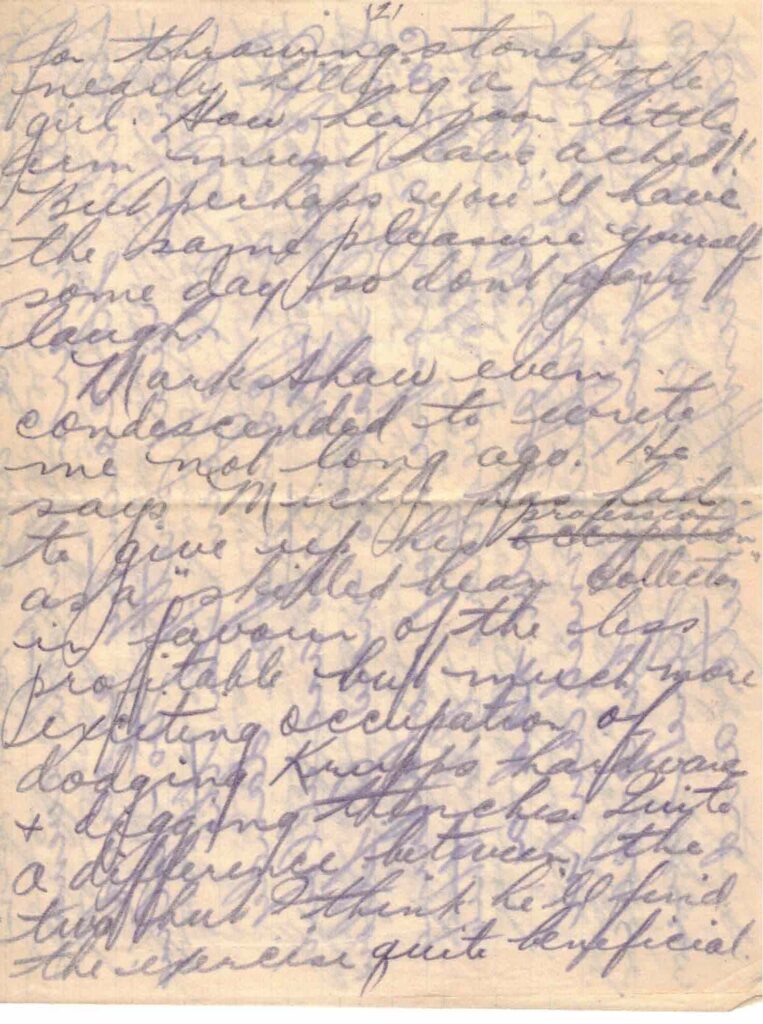 121
for throwing stones &
nearly killing a little
girl. How her poor little
arm must have ached!!
But perhaps you'll have
the same pleasure yourself
some day so don't you
laugh.
Mark Shaw even
condescended to write
me not long ago. He
says Mick has had
profession
to give up his occupation
as a "skilled beer collector"
in favour of the less
profitable but much more
exciting occupation of
dodging Krupps hardware
& digging trenches. Quite
a difference between the
two but I think he'll find
the exercise quite beneficial.